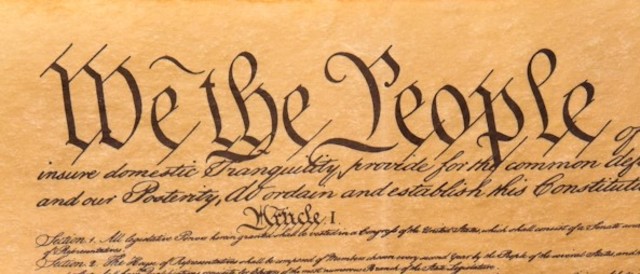 We the People of
insure domestic Tranquility, provide for the common def
and our Posterity, do ordain and establish this Constituti
Article I.
Section 1. All legislative Powers herein granted shall be vested in a Congress of the United States, which shall consist of a Senate and
of Representatives.
Section 2. The House of Representatives shall be composed of Members chosen every second Year by the People of the several States, and
the most numerous Branch of the State Legislature.